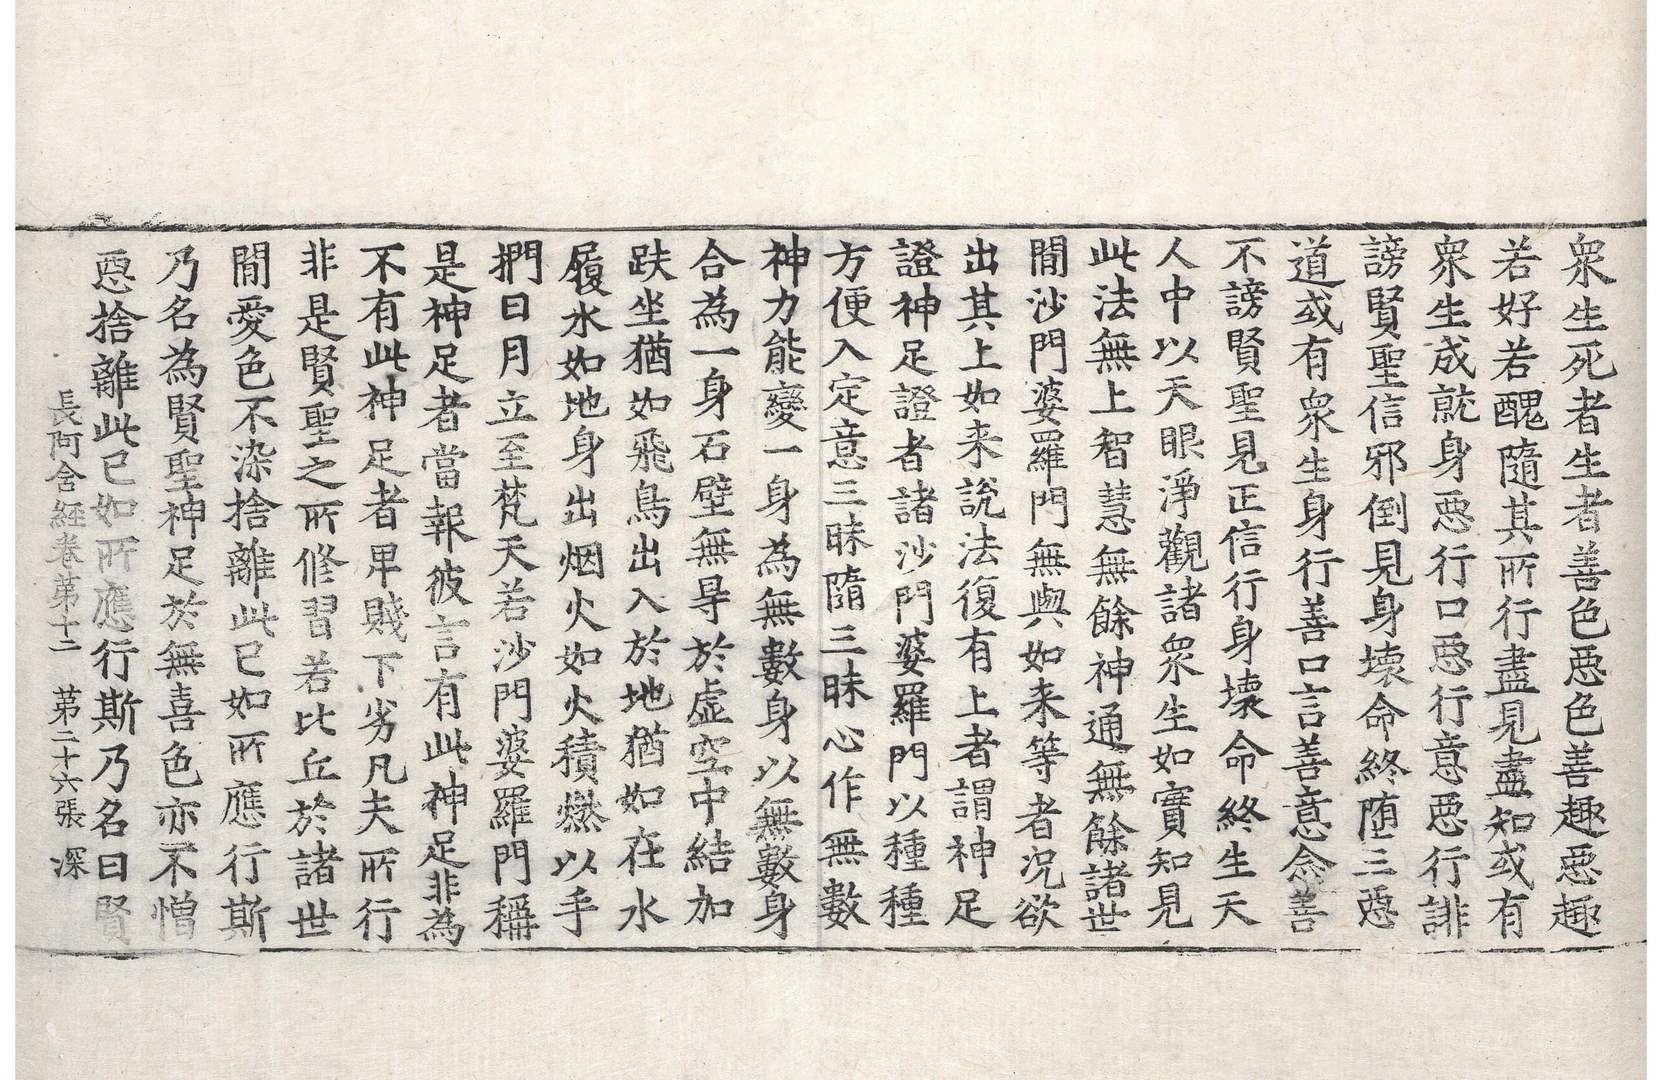 衆生死者生者善色惡色善趣惡趣
若好若醜隨其所行盡見盡知或有
衆生成就身惡行口惡行意惡行誹
謗賢聖信邪倒見身壞命終墮三惡
道或有衆生身行善口言善意念善
不謗賢聖見正信行身壞命終生天
人中以天眼淨觀諸衆生如實知見
此法無上智慧無餘神通無餘諸世
閒沙門婆羅門無與如来等者況欲
出其上如来說法復有上者謂神足
證神足證者諸沙門婆羅門以種種
方便入定意三昧隨三昧心作無數
神力能變一身為無數身以無數身
合為一身石壁無㝵於虛空中結加
趺坐猶如飛鳥出入於地猶如在水
履水如地身出烟火如火積燃以手
捫日月立至梵天若沙門婆羅門稱
是神足者當報彼言有此神足非為
不有此神足者卑賤下劣凡夫所行
非是賢聖之所修習若比丘於諸世
閒愛色不染捨離此已如所應行斯
乃名為賢聖神足於無喜色亦不憎
惡捨離此已如所應行斯乃名曰賢
長阿含經卷第十二　第二十六張　深